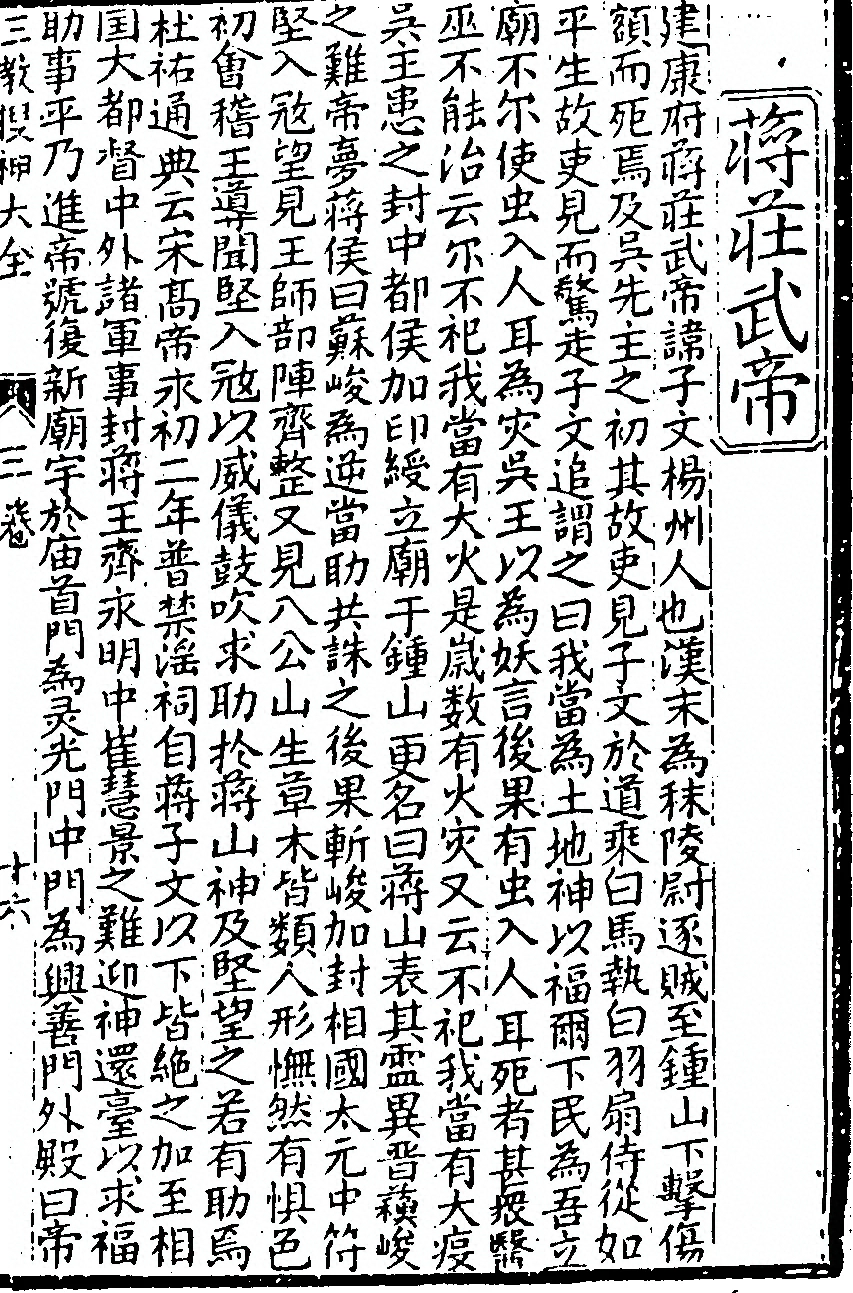 蔣莊武帝
建康府蔣莊武帝諱子文楊州人也漢末為秣陵尉逐賊至鍾山下擊傷
額而死焉及吳先主之初其故吏見子文於道乘白馬執白羽扇侍從如
平生故吏見而驚走子文追謂之曰我當為土地神以福爾下民為吾立
廟不尔使虫入人耳為灾吳王以為妖言後果有虫入人耳死者甚眾醫
巫不能治云尔不祀我當有大火是歲数有火灾又云不祀我當有大疫
吳主患之封中都侯加印綬立廟于鍾山更名曰蔣山表其霊異晋蘓峻
之難帝夢蔣侯曰蘇峻為逆當助共誅之後果斬峻加封相國太元中符
堅入㓂望見王師部陣齊整又見八公山生草木皆類人形憮然有惧色
初會稽王導聞堅入㓂以威儀鼓吹求助扵蔣山神及堅望之若有助焉
杜祐通典云宋髙帝永初二年普禁滛祠自蔣子文以下皆絶之加至相
国大都督中外諸軍事封蔣王齊永明中崔慧景之難迎神還臺以求福
助事平乃進帝號復新廟宇於庙首門為灵光門中門為興善門外殿曰帝
三教搜神大全
三卷
十六